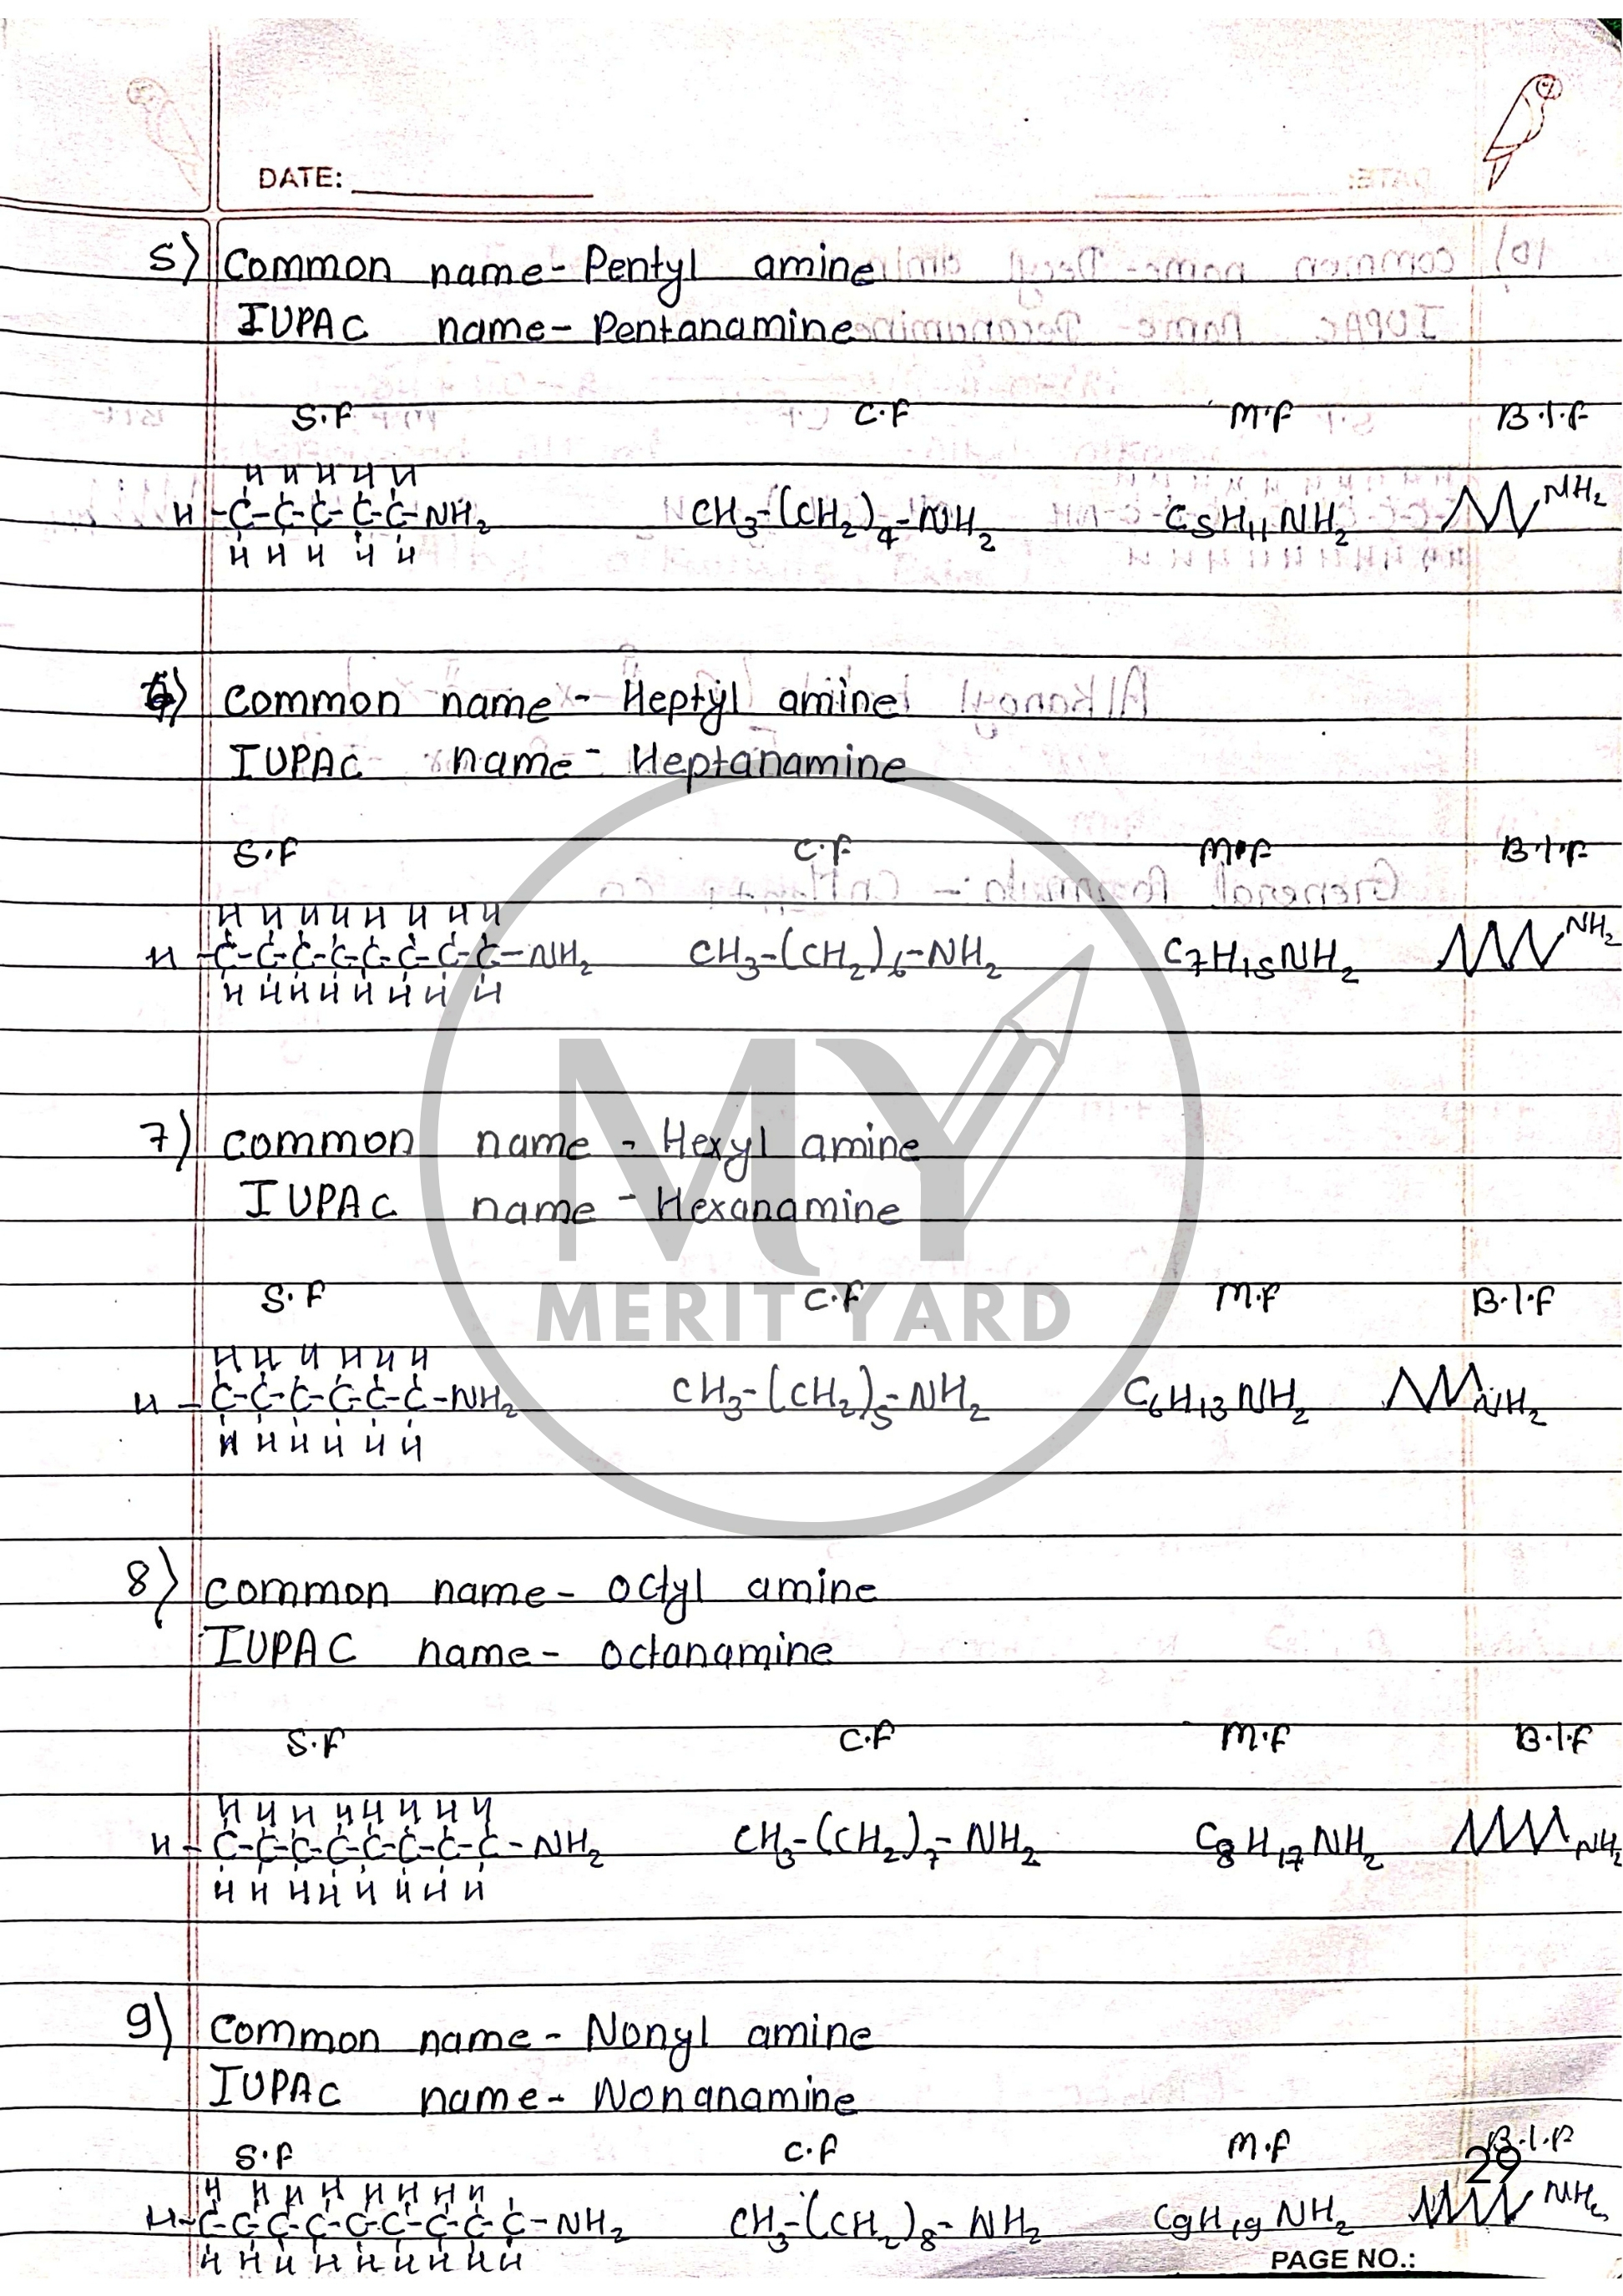 DATE:
5) Common name - Pentyl amine
IUPAC name - Pentanamine
S.F C.F M.F B.l.F
H H H H H
H-C-C-C-C-C-NH2 CH3-(CH2)4-NH2 C5H11NH2 NH2
H H H H H
6) Common name - Heptyl amine
IUPAC name - Heptanamine
S.F C.F M.F B.l.F
H H H H H H H H
H-C-C-C-C-C-C-C-C-NH2 CH3-(CH2)6-NH2 C7H15NH2 NH2
H H H H H H H H
7) Common name - Hexyl amine
IUPAC name - Hexanamine
S.F C.F M.F B.l.F
H H H H H H
H-C-C-C-C-C-C-NH2 CH3-(CH2)5-NH2 C6H13NH2 NH2
H H H H H H
8) Common name - Octyl amine
IUPAC name - Octanamine
S.F C.F M.F B.l.F
H H H H H H H H
H-C-C-C-C-C-C-C-C-NH2 CH3-(CH2)7-NH2 C8H17NH2 NH2
H H H H H H H H
9) Common name - Nonyl amine
IUPAC name - Nonanamine
S.F C.F M.F B.l.F
29
H H H H H H H H
H-C-C-C-C-C-C-C-C-C-NH2 CH3-(CH2)8-NH2 C9H19NH2 NH2
H H H H H H H H H
PAGE NO.:
MY
MERIT YARD